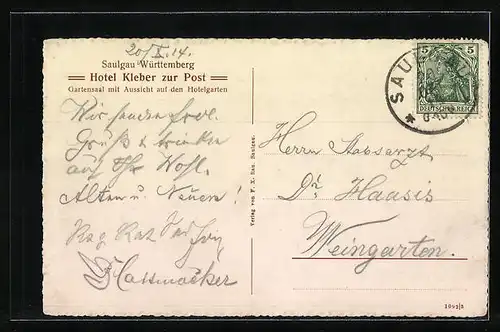 20/X.14.
Saulgau i. Württemberg
Hotel Kleber zur Post
Gartensaal mit Aussicht auf den Hotelgarten
Wir senden frdl.
Gruß & trinken
auf Ihr Wohl.
Alten u. Neuen!
Hassmacker
Verlag von F. X. Sau, Saulgau.
5 5
DEUTSCHES REICH
SAU
Herrn Stabsarzt
Dr. Haasis
Weingarten.